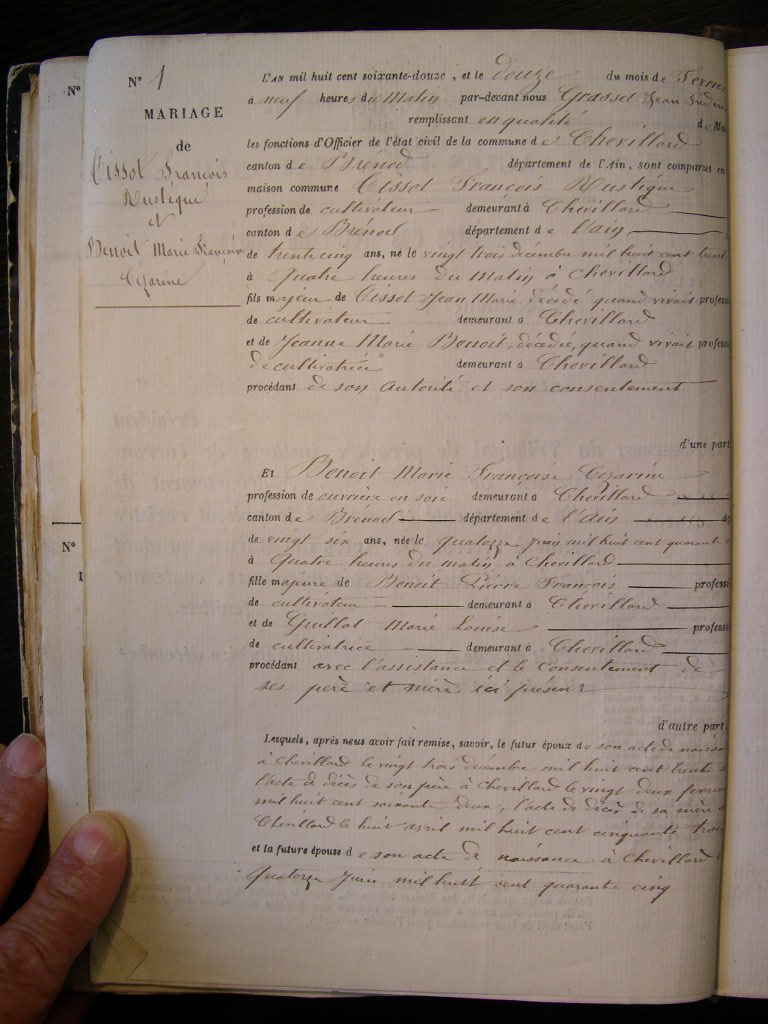 N° 1
MARIAGE
de
Tissot François
Rustique
et
Benoit Marie Françoise
Cezarine
N°
N°
L'AN mil huit cent soixante-douze, et le douze du mois de Fevrier
à neuf heures du Matin par-devant nous Grasset Jean Fréderi
remplissant en qualité de Mai
les fonctions d'Officier de l'état civil de la commune de Chevillard
canton de Brénod département de l'Ain, sont comparus en
maison commune Tissot François Rustique
profession de cultivateur demeurant à Chevillard
canton de Brénod département de l'ain
de trente cinq ans, né le vingt trois décembre mil huit cent trente
à quatre heures du Matin à Chevillard
fils majeur de Tissot Jean Marie, décédé, quand vivait profess
de cultivateur demeurant à Chevillard
et de Jeanne Marie Benoit, décédée, quand vivait profess
de cultivatrice demeurant à Chevillard
procédant de son autorité et son consentement
d'une part
Et Benoit Marie Françoise Cezarine
profession de ouvrière en soie demeurant à Chevillard
canton de Brénod département de l'ain
de vingt six ans, née le quatorze juin mil huit cent quarante c
à quatre heures du matin à Chevillard
fille majeure de Benoit Pierre François professi
de cultivateur demeurant à Chevillard
et de Guillot Marie Louise professi
de cultivatrice demeurant à Chevillard
procédant avec l'assistance et le consentement de
ses père et mère ici présent
d'autre part,
Lesquels, après nous avoir fait remise, savoir, le futur époux de son acte de naissan
à Chevillard le vingt trois decembre mil huit cent trente s
l'acte de décès de son père à Chevillard le vingt deux fevrier
mil huit cent soixante deux, l'acte de décès de sa mère à
Chevillard le huit avril mil huit cent cinquante trois
et la future épouse de son acte de naissance à Chevillard l
quatorze juin mil huit cent quarante cinq